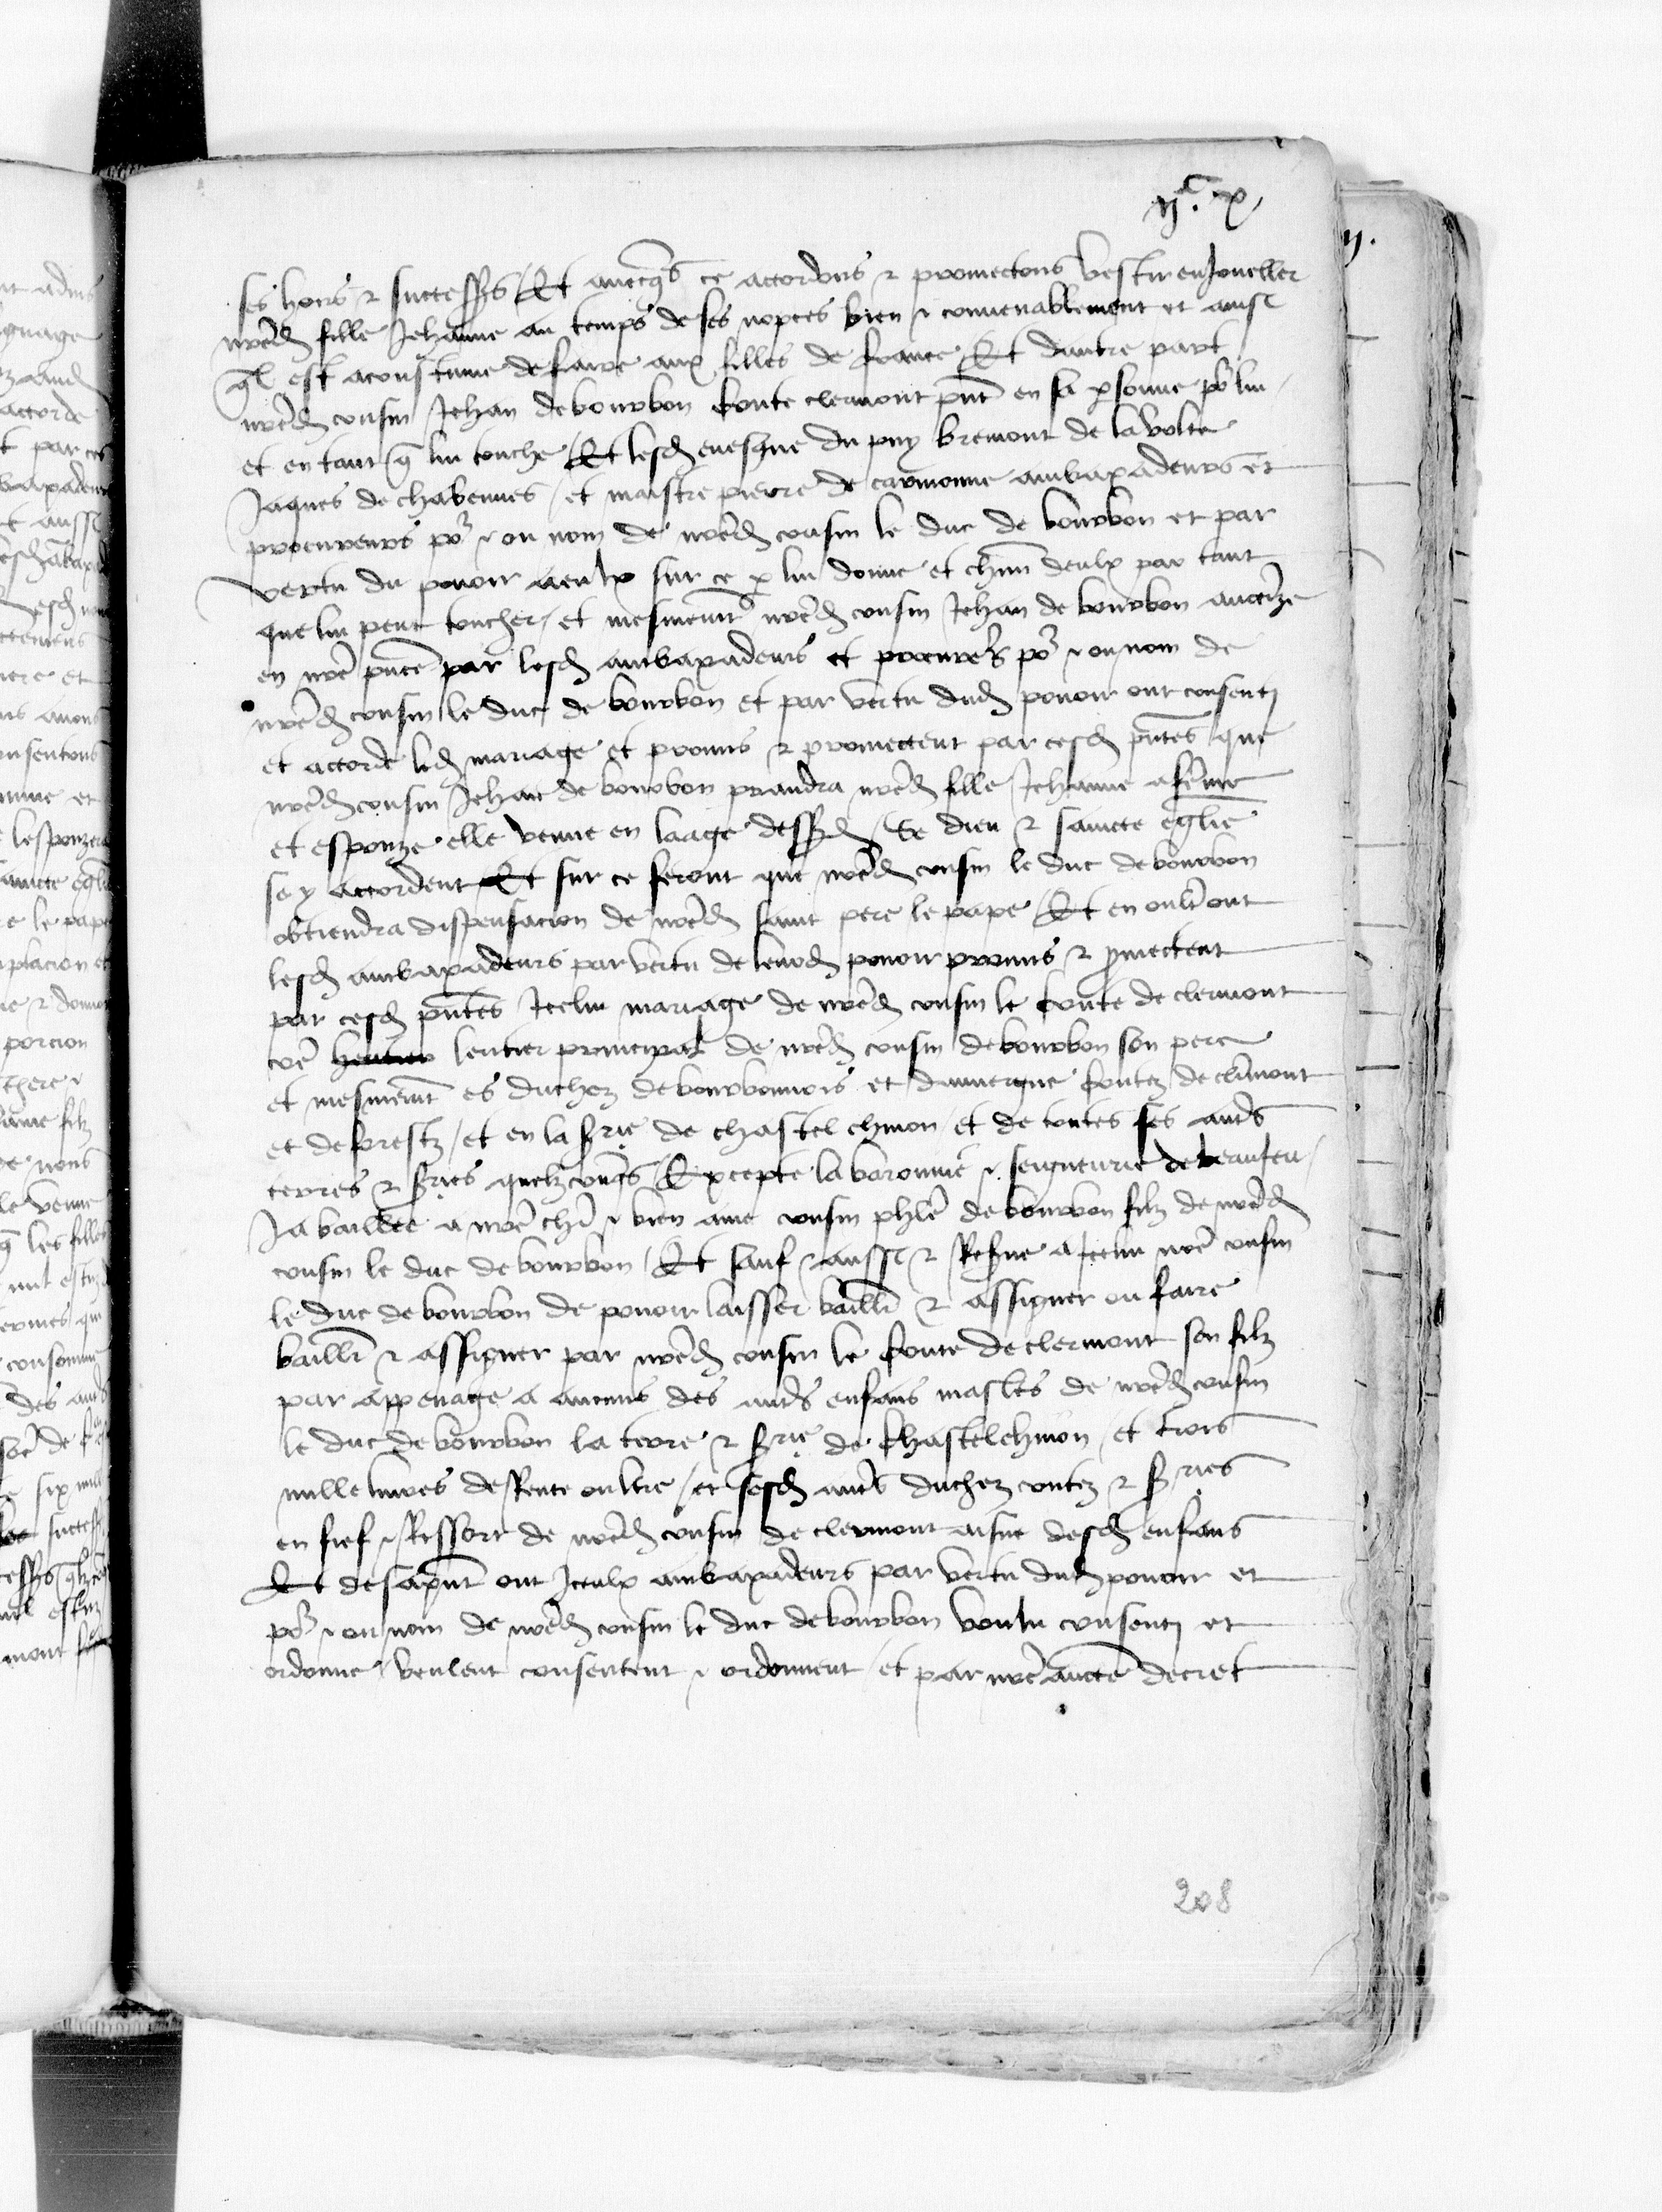 ijc. x
ses hoirs & successrs Et avecqs ce accordons & promectons vestir en joueller
nred fille Jehanne au temps de ses nopces bien & convenablement et ainsi
ql est acoustume de faire aux filles de france Et dautre part
nred cousin Jehan de bourbon conte clermont pnt en sa psonne por lui
et en tant q lui touche Et lesd evesque du puy bremont de la volte
Jaques de chabennes et maistre pierre de carmonne ambaxadeurs et
procureurs por & ou nom de nred cousin le duc de bourbon et par
vertu du pouoir a eulx sur ce p lui donne et chun deulx par tant
que lui peut toucher et mesmemt nred cousin Jehan de bourbon auctorize
en nre pnce par lesd ambaxadeurs et procurers por & ou nom de
nred cousin le duc de bourbon et par vertu dud pouoir ont consenti
et accorde led mariage et promis & promectent par cesd pntes que
nred cousin Jehan de bourbon prandra nred fille Jehanne a feme
et espouze elle venue en laage dessd Se dieu & saincte eglie
se y accordent Et sur ce feront que nred cousin le duc de bourbon
obtiendra dispensacion de nred saint pere le pape Et en oult ont
lesd ambaxadeurs par vertu de leurd pouoir promis & pmectent
par cesd pntes icelui mariage de nred cousin le conte de clermont
cõe lentier principal de nred cousin de bourbon son pere
et mesmemt es duchez de bourbonnois et dauvergne contez de clmont
et de forestz et en la srie de chastel chinon et de toutes ses auts
terres & sries quelzcoqs Excepte la baronnie & seigneurie de beaujeu
Ja baillee a nre chr & bien ame cousin phle de bourbon filz de nred
cousin le duc de bourbon Et sauf & aussi & Reserve a icelui nre cousin
le duc de bourbon de pouoir laisser baillr & assigner ou faire
baillr & assigner par nred cousin le conte de clermont son filz
par appenage a aucuns des auts enfans masles de nred cousin
le duc de bourbon la terre & srie de chastelchinon et trois
mille livres de Rente oultre et sesd auts duchez contez & sries
en fief & Ressort de nred cousin de clermont aisne desd enfans
Et desapnt ont iceulx ambaxadeurs par vertu dud pouoir et
por & ou nom de nred cousin le duc de bourbon voulu consenti et
ordonne veulent consentent & ordonnent et par nre aucte decret
208